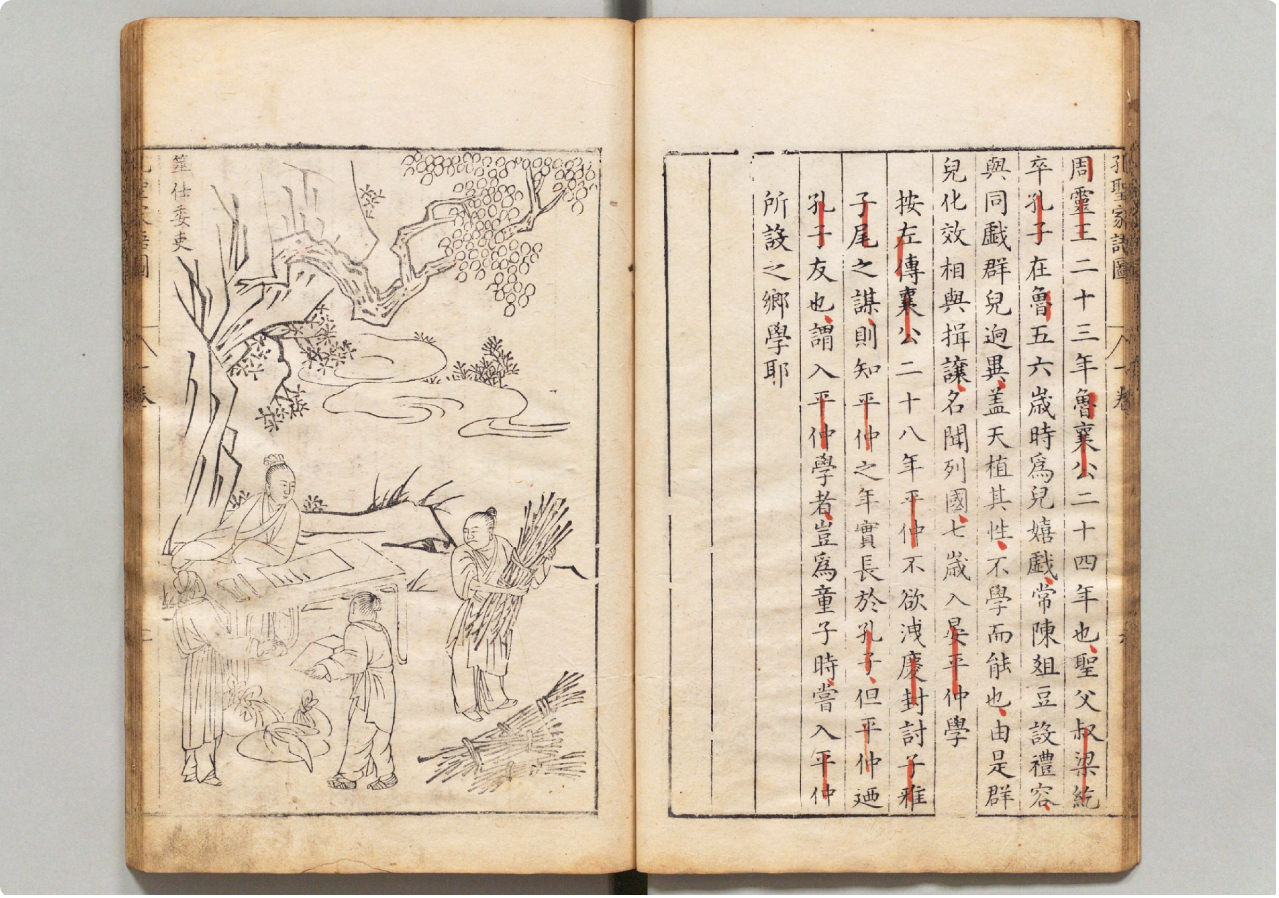 孔聖家語圖
一卷
周靈王二十三年魯襄公二十四年也聖父叔梁紇
卒孔子在魯五六歲時爲兒嬉戲常陳俎豆設禮容
與同戲群兒逈異蓋天植其性不學而能也由是群
兒化效相與揖讓名聞列國七歲入晏平仲學
按左傳襄公二十八年平仲不欲洩慶封討子雅
子尾之謀則知平仲之年實長於孔子但平仲廼
孔子友也謂入平仲學者豈爲童子時嘗入平仲
所設之鄉學耶
筮仕委吏